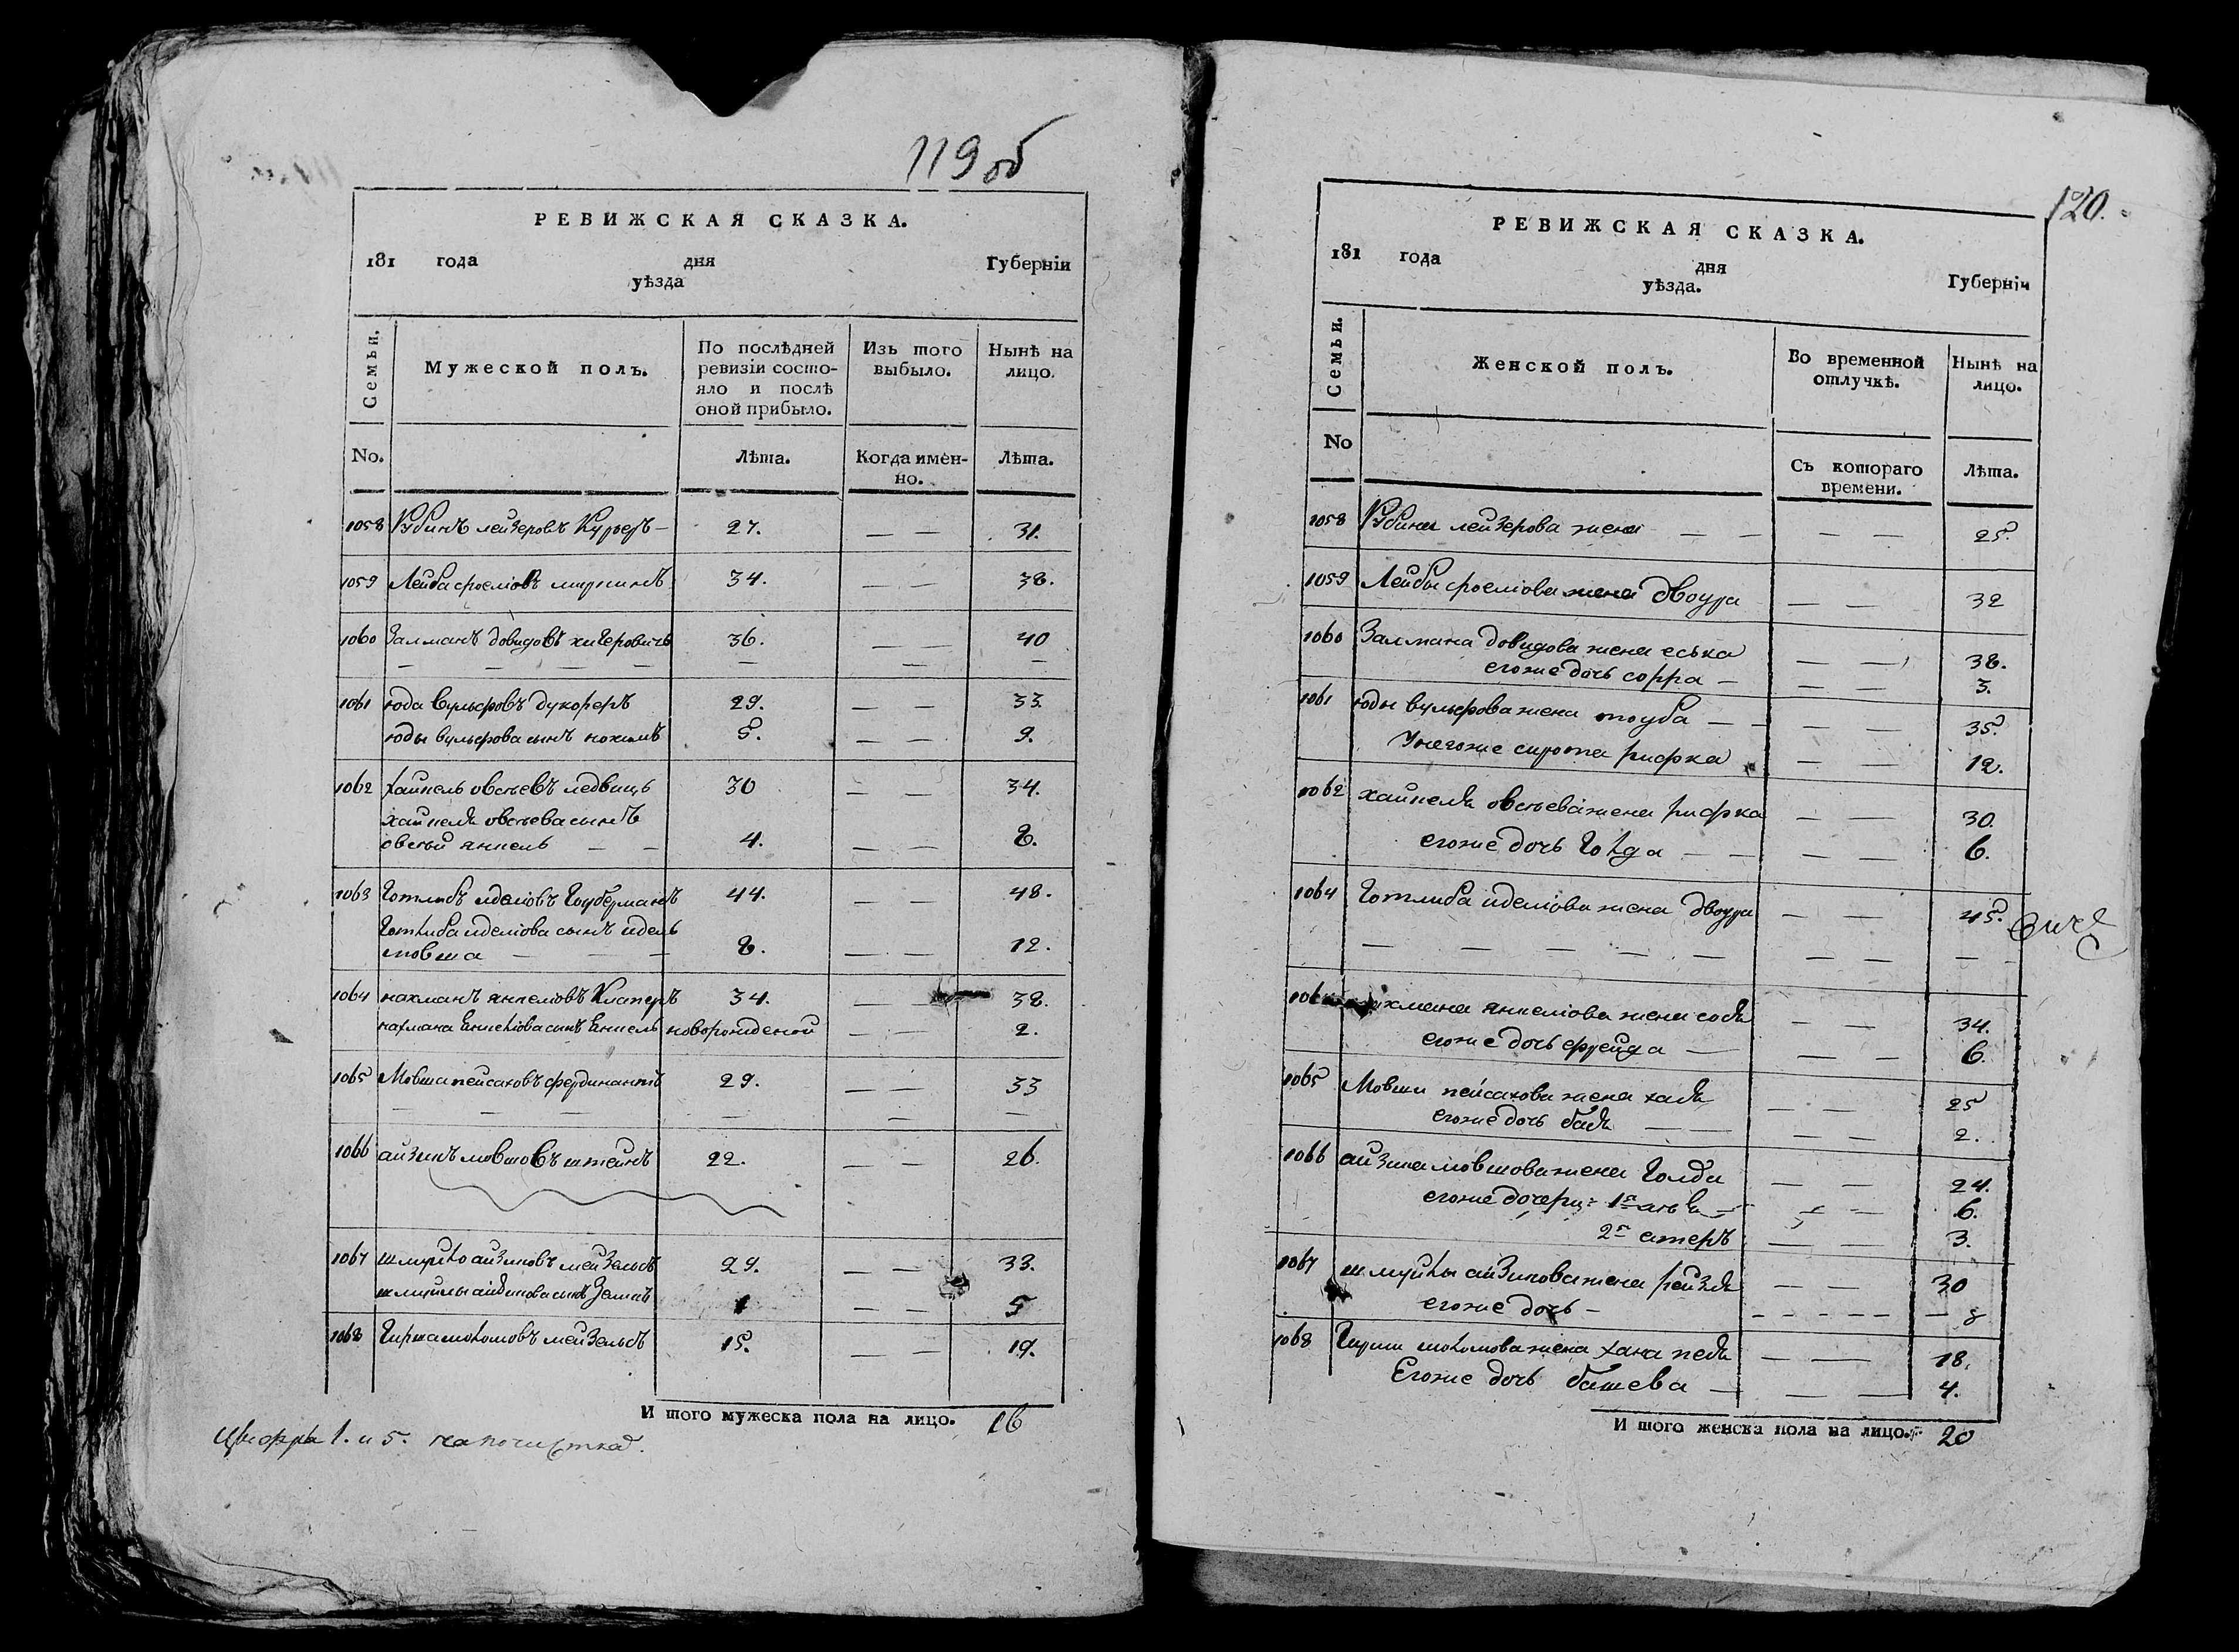 119 об
РЕВИЖСКАЯ СКАЗКА.
181 года дня Губерніи
уѣзда
Семьи. Мужеской полъ. По послѣдней ревизіи состо- Изъ того Нынѣ на
яло и послѣ выбыло. лицо.
оной прибыло.
No. Лѣта. Когда имен- Лѣта.
но.
1058 Рубинъ лейзеровъ Курьеръ — 27. — — 31.
1059 Лейба сроеліовъ 34. — — 38.
1060 Залманъ довидовъ хигеровичъ 36. — — 40
— — — — — — —
1061 юда вульфовъ дукореръ 29. — — 33.
юды вульфова сынъ нохимъ 5. — — 9.
1062 хайкель овсѣевъ ледвищъ 30 — — 34.
хайкеля овсѣева сынъ
овсѣй янкель — — 4. — — 8.
1063 Готлибъ иделіовъ Гоуберманъ 44. — — 48.
Готлиба иделіова сынъ идель
мовша — — — 8. — — 12.
1064 нахманъ янкеліовъ Клаперъ 34. — — 38.
нахмана Енкеліова сынъ Енкель новорожденой — — 2.
1065 Мовша пейсаховъ фердинантъ 29. — — 33
— — — — — —
1066 айзикъ мовшовъ штейнъ 22. — — 26.
1067 шмуйло айзиковъ мейзельсъ 29. — — 33.
шмуйлы айзикова сынъ Зеликъ 1 — — 5
1068 Гирша шоломовъ мейзельсъ 15. — — 19.
И того мужеска пола на лицо. 16
Цыфры 1. и 5. на почисткѣ.
120.
РЕВИЖСКАЯ СКАЗКА.
181 года дня Губерніи
уѣзда.
Семьи. Женской полъ. Во временной Нынѣ на
отлучкѣ. лицо.
No Съ котораго Лѣта.
времени.
1058 Рубины лейзерова жена — — — — 25.
1059 Лейбы сроеліова жена двоура — — 32
1060 Залмана довидова жена еська — — 38.
егоже дочь сорра — — — 3.
1061 юды вульфова жена тоуба — — — — 35.
У негоже сирота рифка — — 12.
1062 хайкеля овсѣева жена рифка — — 30.
егоже дочь Голда — — — — 6.
1064 Готлиба иделіова жена двоура — — 45.
— — — — — — — — —
нахмана янкеліова жена собя — — 34.
егоже дочь фрейда — — — 6.
1065 Мовши пейсахова жена хая — — 25
егоже дочь бая — — — — 2.
1066 айзика мовшова жена Голда — — 24.
егоже дочери: 1я — — 6.
2я етеръ — — 3.
1067 шмуйлы айзикова жена рейзя — — 30
егоже дочь — — — — — — 8
1068 Гирши шоломова жена хана песя — — 18.
Егоже дочь башева — — — 4.
И того женска пола на лицо. 20